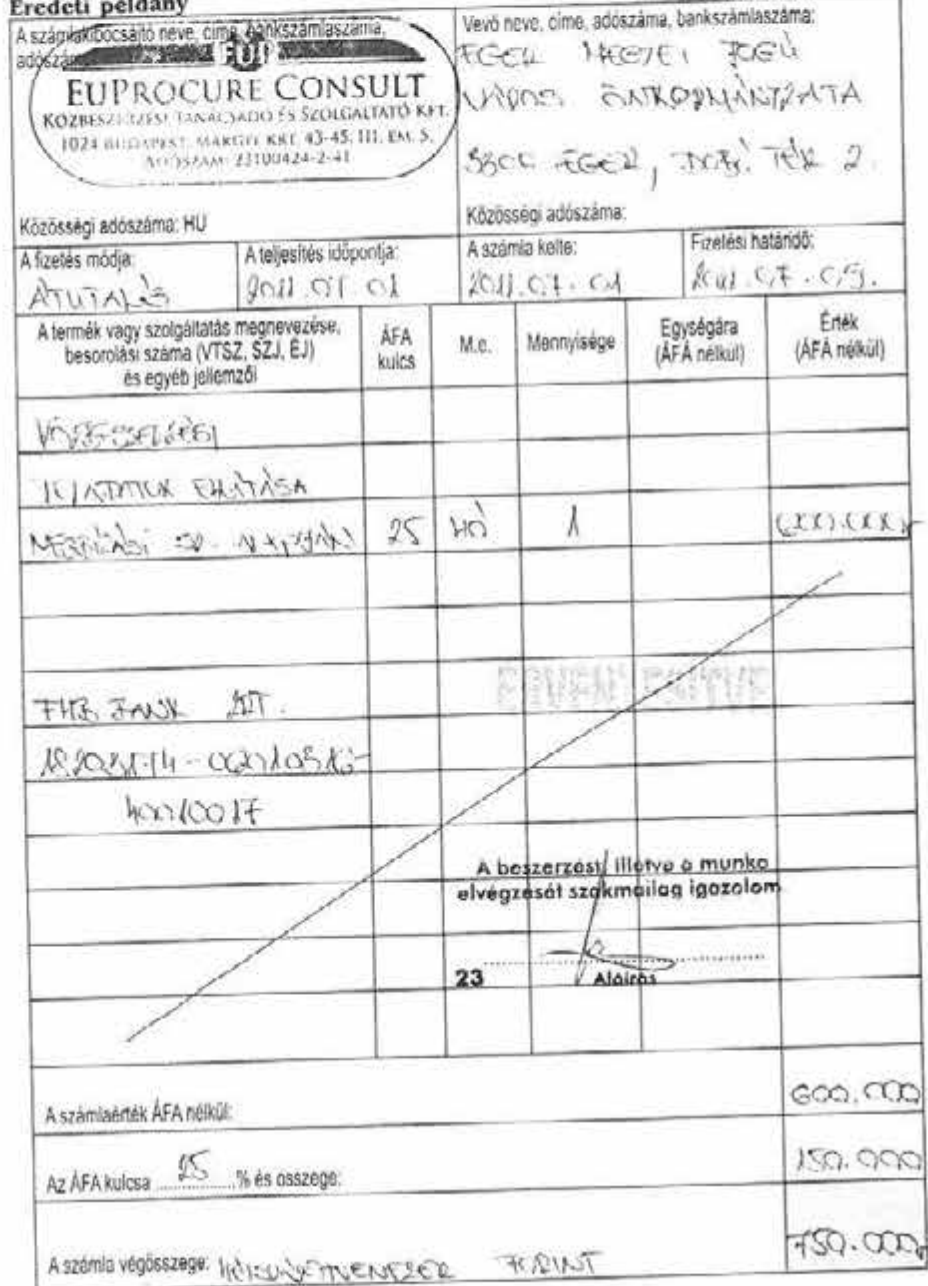 Eredeti példány
A számlakibocsátó neve, címe, bankszámlaszáma,
adószáma
EUPROCURE CONSULT
KÖZBESZERZÉSI TANÁCSADÓ ÉS SZOLGÁLTATÓ KFT.
1024 BUDAPEST, MARGIT KRT. 43-45. III. EM. 5.
ADÓSZÁM: 23100424-2-41
Közösségi adószáma: HU
Vevő neve, címe, adószáma, bankszámlaszáma:
EGER MEGYEI JOGÚ
VÁROS ÖNKORMÁNYZATA
3300 EGER, DOBÓ TÉR 2.
Közösségi adószáma:
A fizetés módja:
ÁTUTALÁS
A teljesítés időpontja:
2011.07.01
A számla kelte:
2011.07.01
Fizetési határidő:
2011.07.09.
A termék vagy szolgáltatás megnevezése,
besorolási száma (VTSZ, SZJ, ÉJ)
és egyéb jellemzői
ÁFA
kulcs
M.e.
Mennyisége
Egységára
(ÁFA nélkül)
Érték
(ÁFA nélkül)
ELLÁTÁSA
MEGBÍZÁSI 25 HÓ 1
FHB BANK ZRT.
40010017
A beszerzést, illetve a munka
elvégzését szakmailag igazolom
23
Aláírás
A számlaérték ÁFA nélkül: 600.000
Az ÁFA kulcsa 25 % és összege: 150.000
A számla végösszege: FORINT 750.000,-